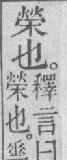 榮也。
釋言曰
榮也。